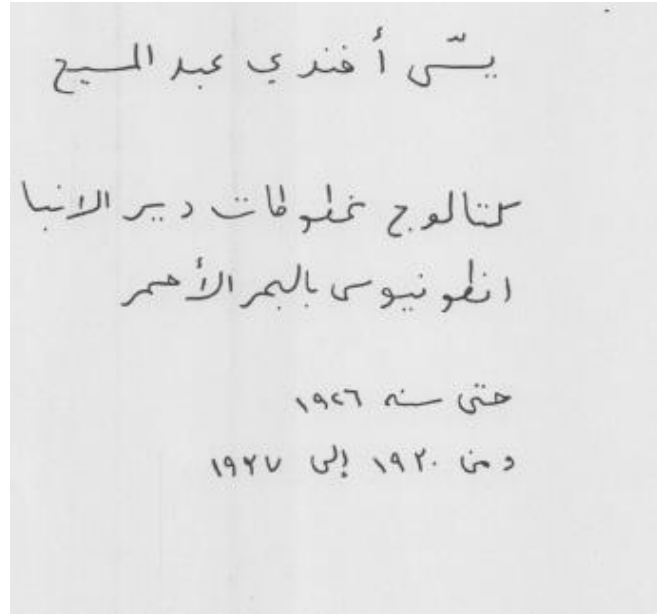 يسّى أفندي عبد المسيح
كتالوج مخطوطات دير الانبا
انطونيوس بالبحر الأحمر
حتى سنه ١٩٢٦
ومن ١٩٣٠ إلى ١٩٣٧